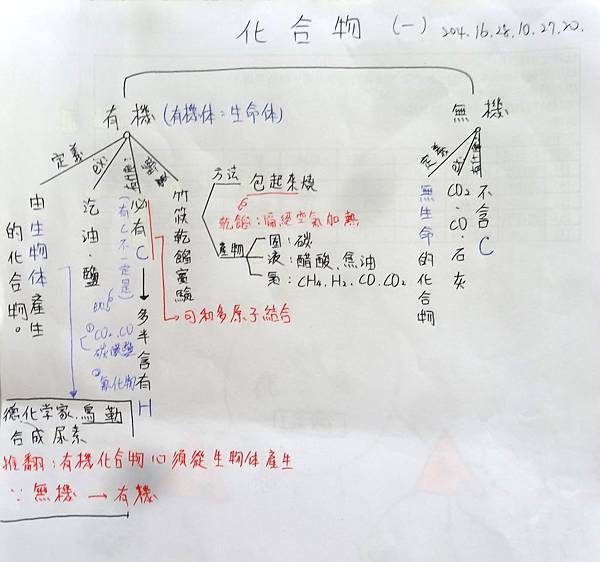 化合物 (一) 204.16.28.10.27.20.
有機 (有機体:生命体)
定義
由生物体產生
的化合物。
ex:
汽油.鹽
必有C→多半含有H
(有C不一定是)
ex:
①CO2.CO
碳酸鹽
②氰化物
可和多原子結合
實驗
竹筷乾餾實驗
方法 包起來燒
乾餾:隔絕空氣加熱
產物
固:碳
液:醋酸.焦油
氣:CH4.H2.CO.CO2
德化学家.烏勒
合成尿素
推翻:有機化合物必須從生物体產生
∵無機→有機
無機
定義
無生命的化合物
ex:
CO2.CO.石灰
不含C